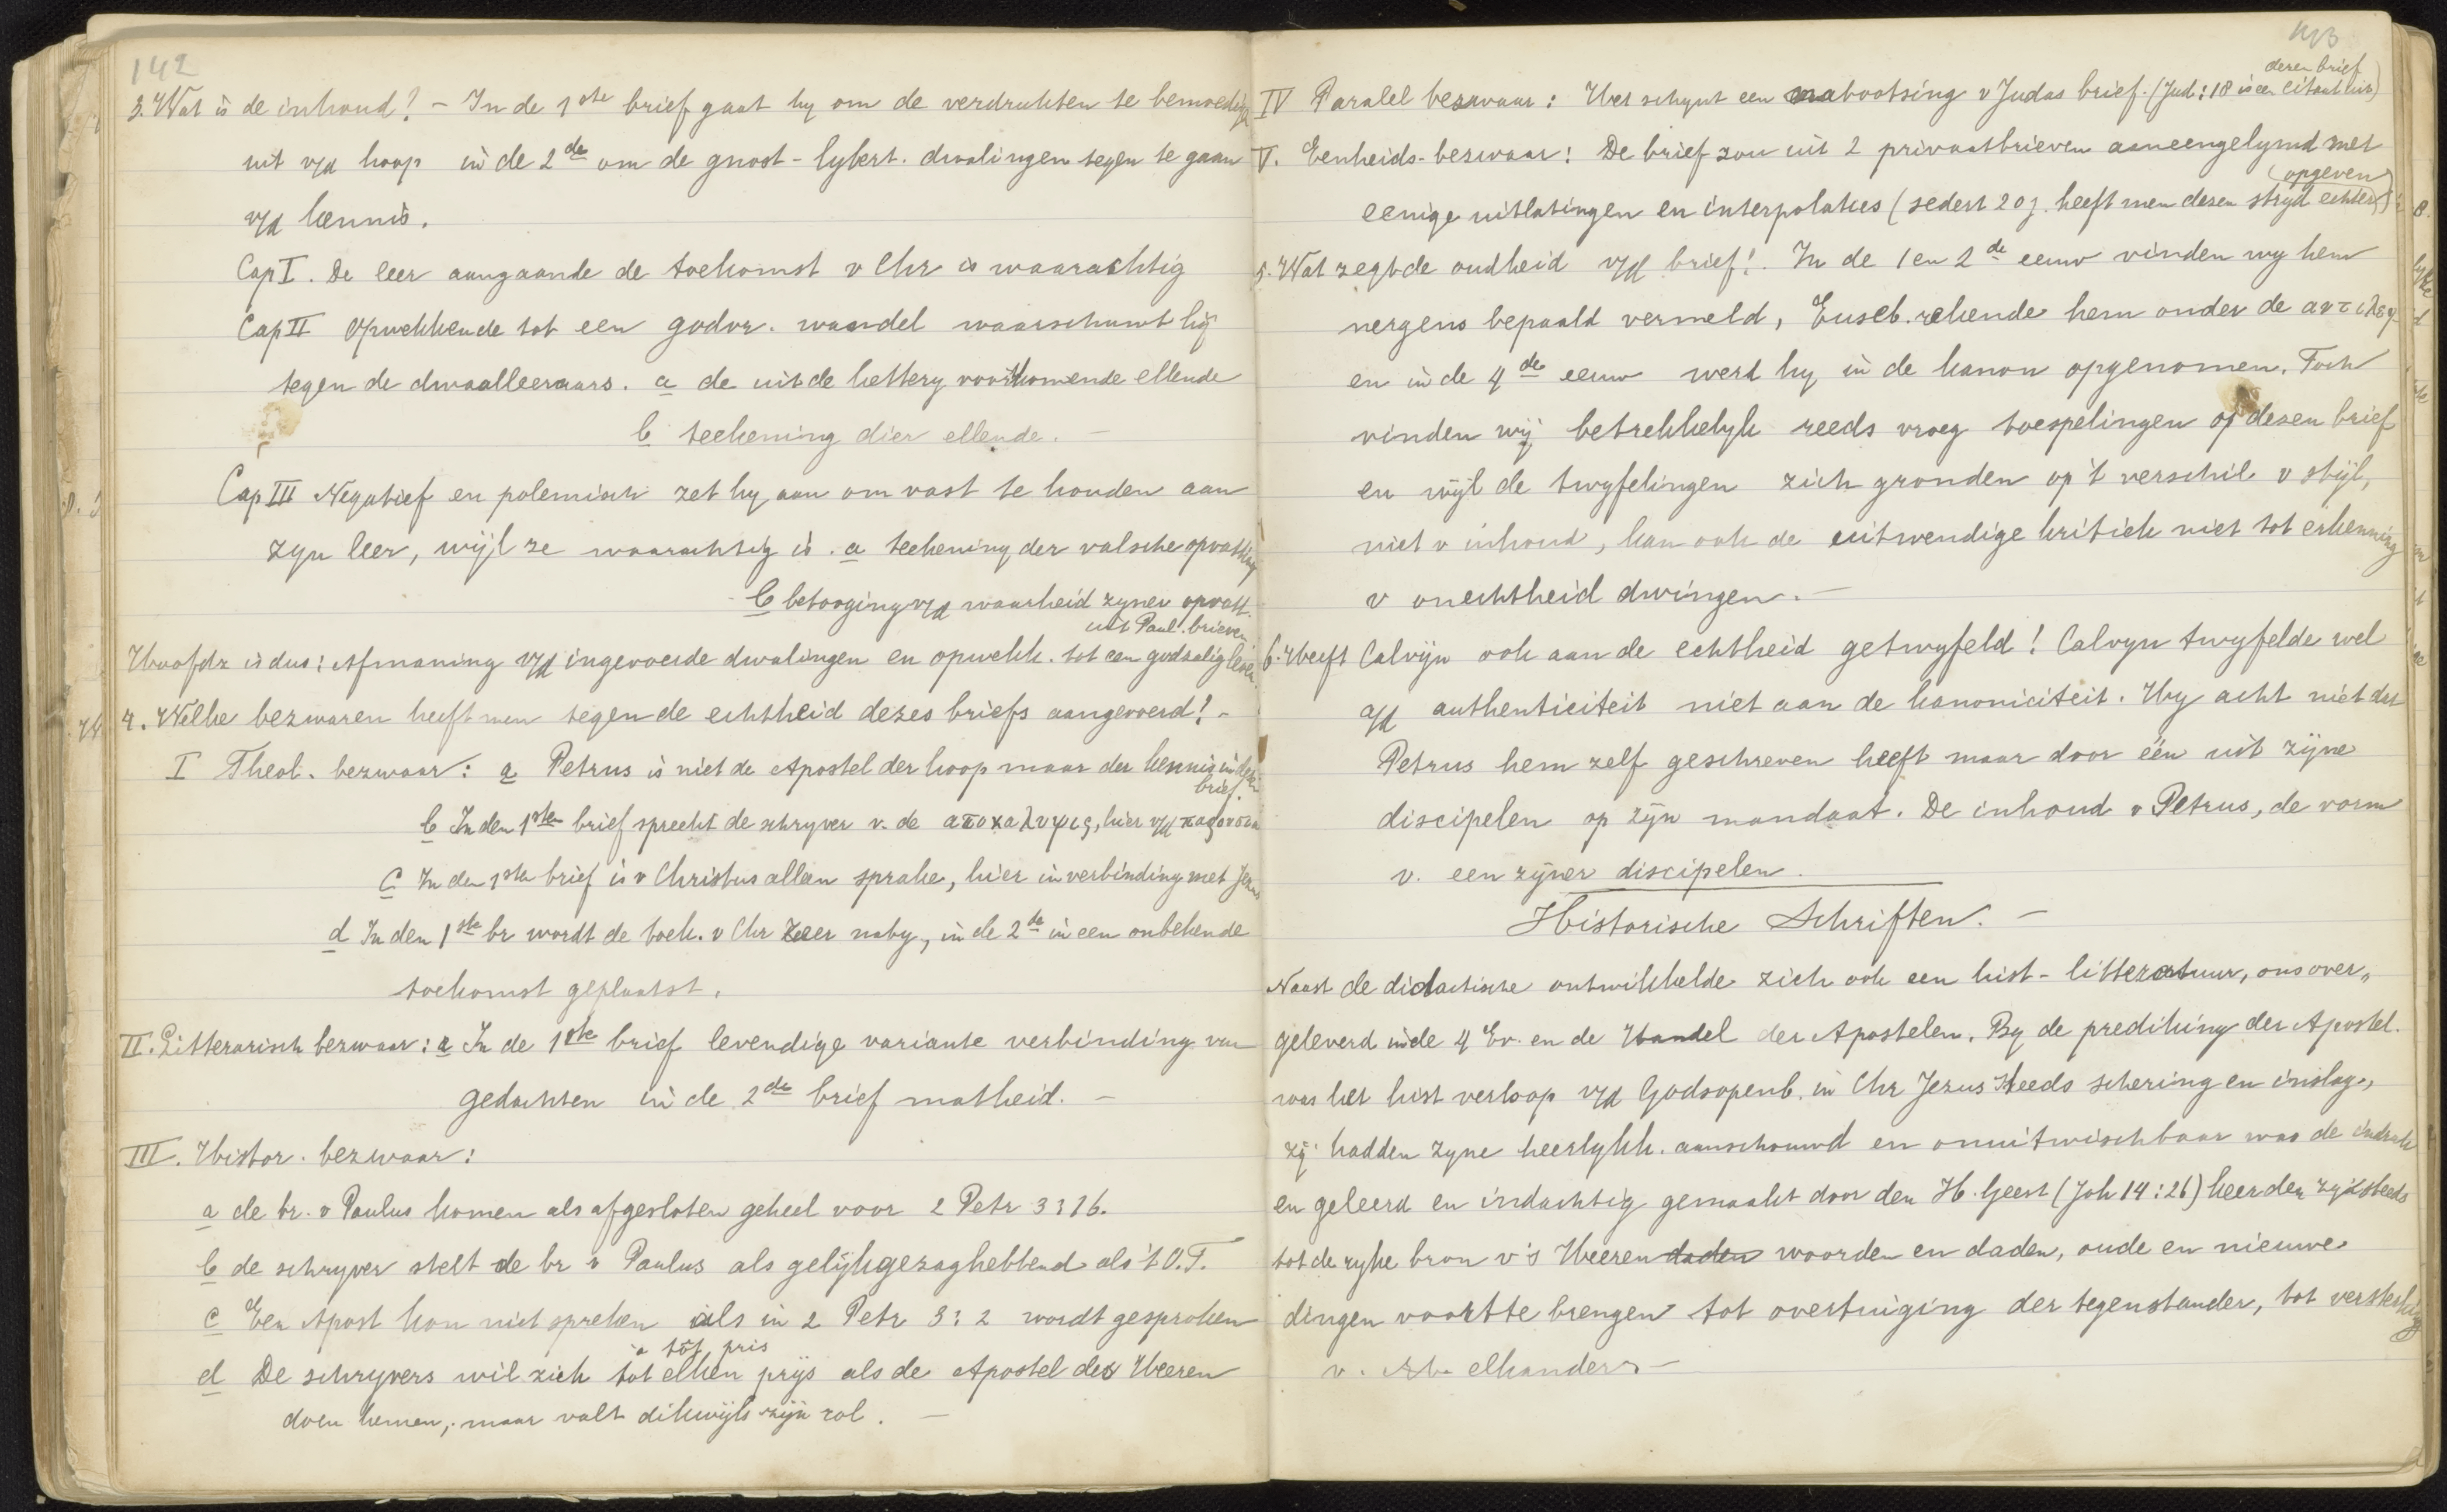 142
3. Wat is de inhoud? – In de 1ste brief gaat hy om de verdrukten te bemoedigen
uit v/d hoop in de 2de om de gnost-lybert. dwalingen tegen te gaan
v/d kennis.
Cap I. De leer aangaande de toekomst v Chr is waarachtig
Cap II Opwekkende tot een godvr. wandel waarschuwt hij
tegen de dwaalleeraars. a de uit de kettery voortkomende ellende
b teekening dier ellende. –
Cap III Negatief en polemisch zet hy aan om vast te houden aan
zyn leer, wijl ze waarachtig is. a teekening der valsche opvatting
b betooging v/d waarheid zyner opvatt.
uit Paul. brieven
Hoofdz is dus: Afmaning v/d ingevoerde dwalingen en opwekk. tot een godzalig leven.
4. Welke bezwaren heeft men tegen de echtheid dezes briefs aangevoerd? –
I Theol. bezwaar: a Petrus is niet de Apostel der hoop maar der kennis in dezen
brief.
b In den 1sten brief spreekt de schryver v. de αποκαλυψις, hier v/d παρουσια
c In den 1ste brief is v Christus alleen sprake, hier in verbinding met Jezus
d In den 1ste br wordt de toek. v Chr zeer naby, in de 2de in een onbekende
toekomst geplaatst.
II. Litterarisch bezwaar: a In de 1ste brief levendige variante verbinding van
gedachten in de 2de brief matheid. –
III. Histor. bezwaar:
a de br. v Paulus komen als afgesloten geheel voor 2 Petr 3:16.
b de schryver stelt de br v Paulus als gelijkgezaghebbend als 't O.T.
c Een Apost kan niet spreken als in 2 Petr 3:2 wordt gesproken
a tôt pris
d De schryvers wil zich tot elken prijs als de Apostel des Heeren
doen kennen, maar valt dikwijls zijn rol. –
143
dezen brief
IV Paralel bezwaar: Het schynt een nabootsing v Judas brief. (Jud: 18 is een citaat uit)
V. Eenheids-bezwaar: De brief zou uit 2 privaatbrieven aaneengelymd met
(opgeven)
eenige uitlatingen en interpolaties (sedert 20 j. heeft men dezen stryd echter)
5. Wat zegt de oudheid v/d brief? In de 1 en 2de eeuw vinden wy hem
nergens bepaald vermeld, Euseb. rekende hem onder de αντιλεγ
en in de 4de eeuw werd hy in de kanon opgenomen. Toch
vinden wij betrekkelyk reeds vroeg toespelingen op dezen brief
en wijl de twyfelingen zich gronden op 't verschil v stijl,
niet v inhoud, kan ook de uitwendige kritiek niet tot erkenning
v onechtheid dwingen. –
6. Heeft Calvijn ook aan de echtheid getwyfeld? Calvyn twyfelde wel
a/d authenticiteit niet aan de kanoniciteit. Hy acht niet dat
Petrus hem zelf geschreven heeft maar door één uit zijne
discipelen op zijn mandaat. De inhoud v Petrus, de vorm
v. een zijner discipelen.
Historische Schriften. –
Naast de didactische ontwikkelde zich ook een hist-litteratuur, ons over„
geleverd in de 4 Ev. en de Handel der Apostelen. By de prediking der Apostel.
was het hist verloop v/d Godsopenb. in Chr Jezus steeds schering en inslag,
zij hadden zyne heerlykh. aanschouwd en onuitwischbaar was de indruk
en geleerd en indachtig gemaakt door den H. Geest (Joh 14:26) keerden zy steeds
tot de ryke bron v 's Heeren daden woorden en daden, oude en nieuwe
dingen voort te brengen tot overtuiging der tegenstander, tot versterking
v. elkander –